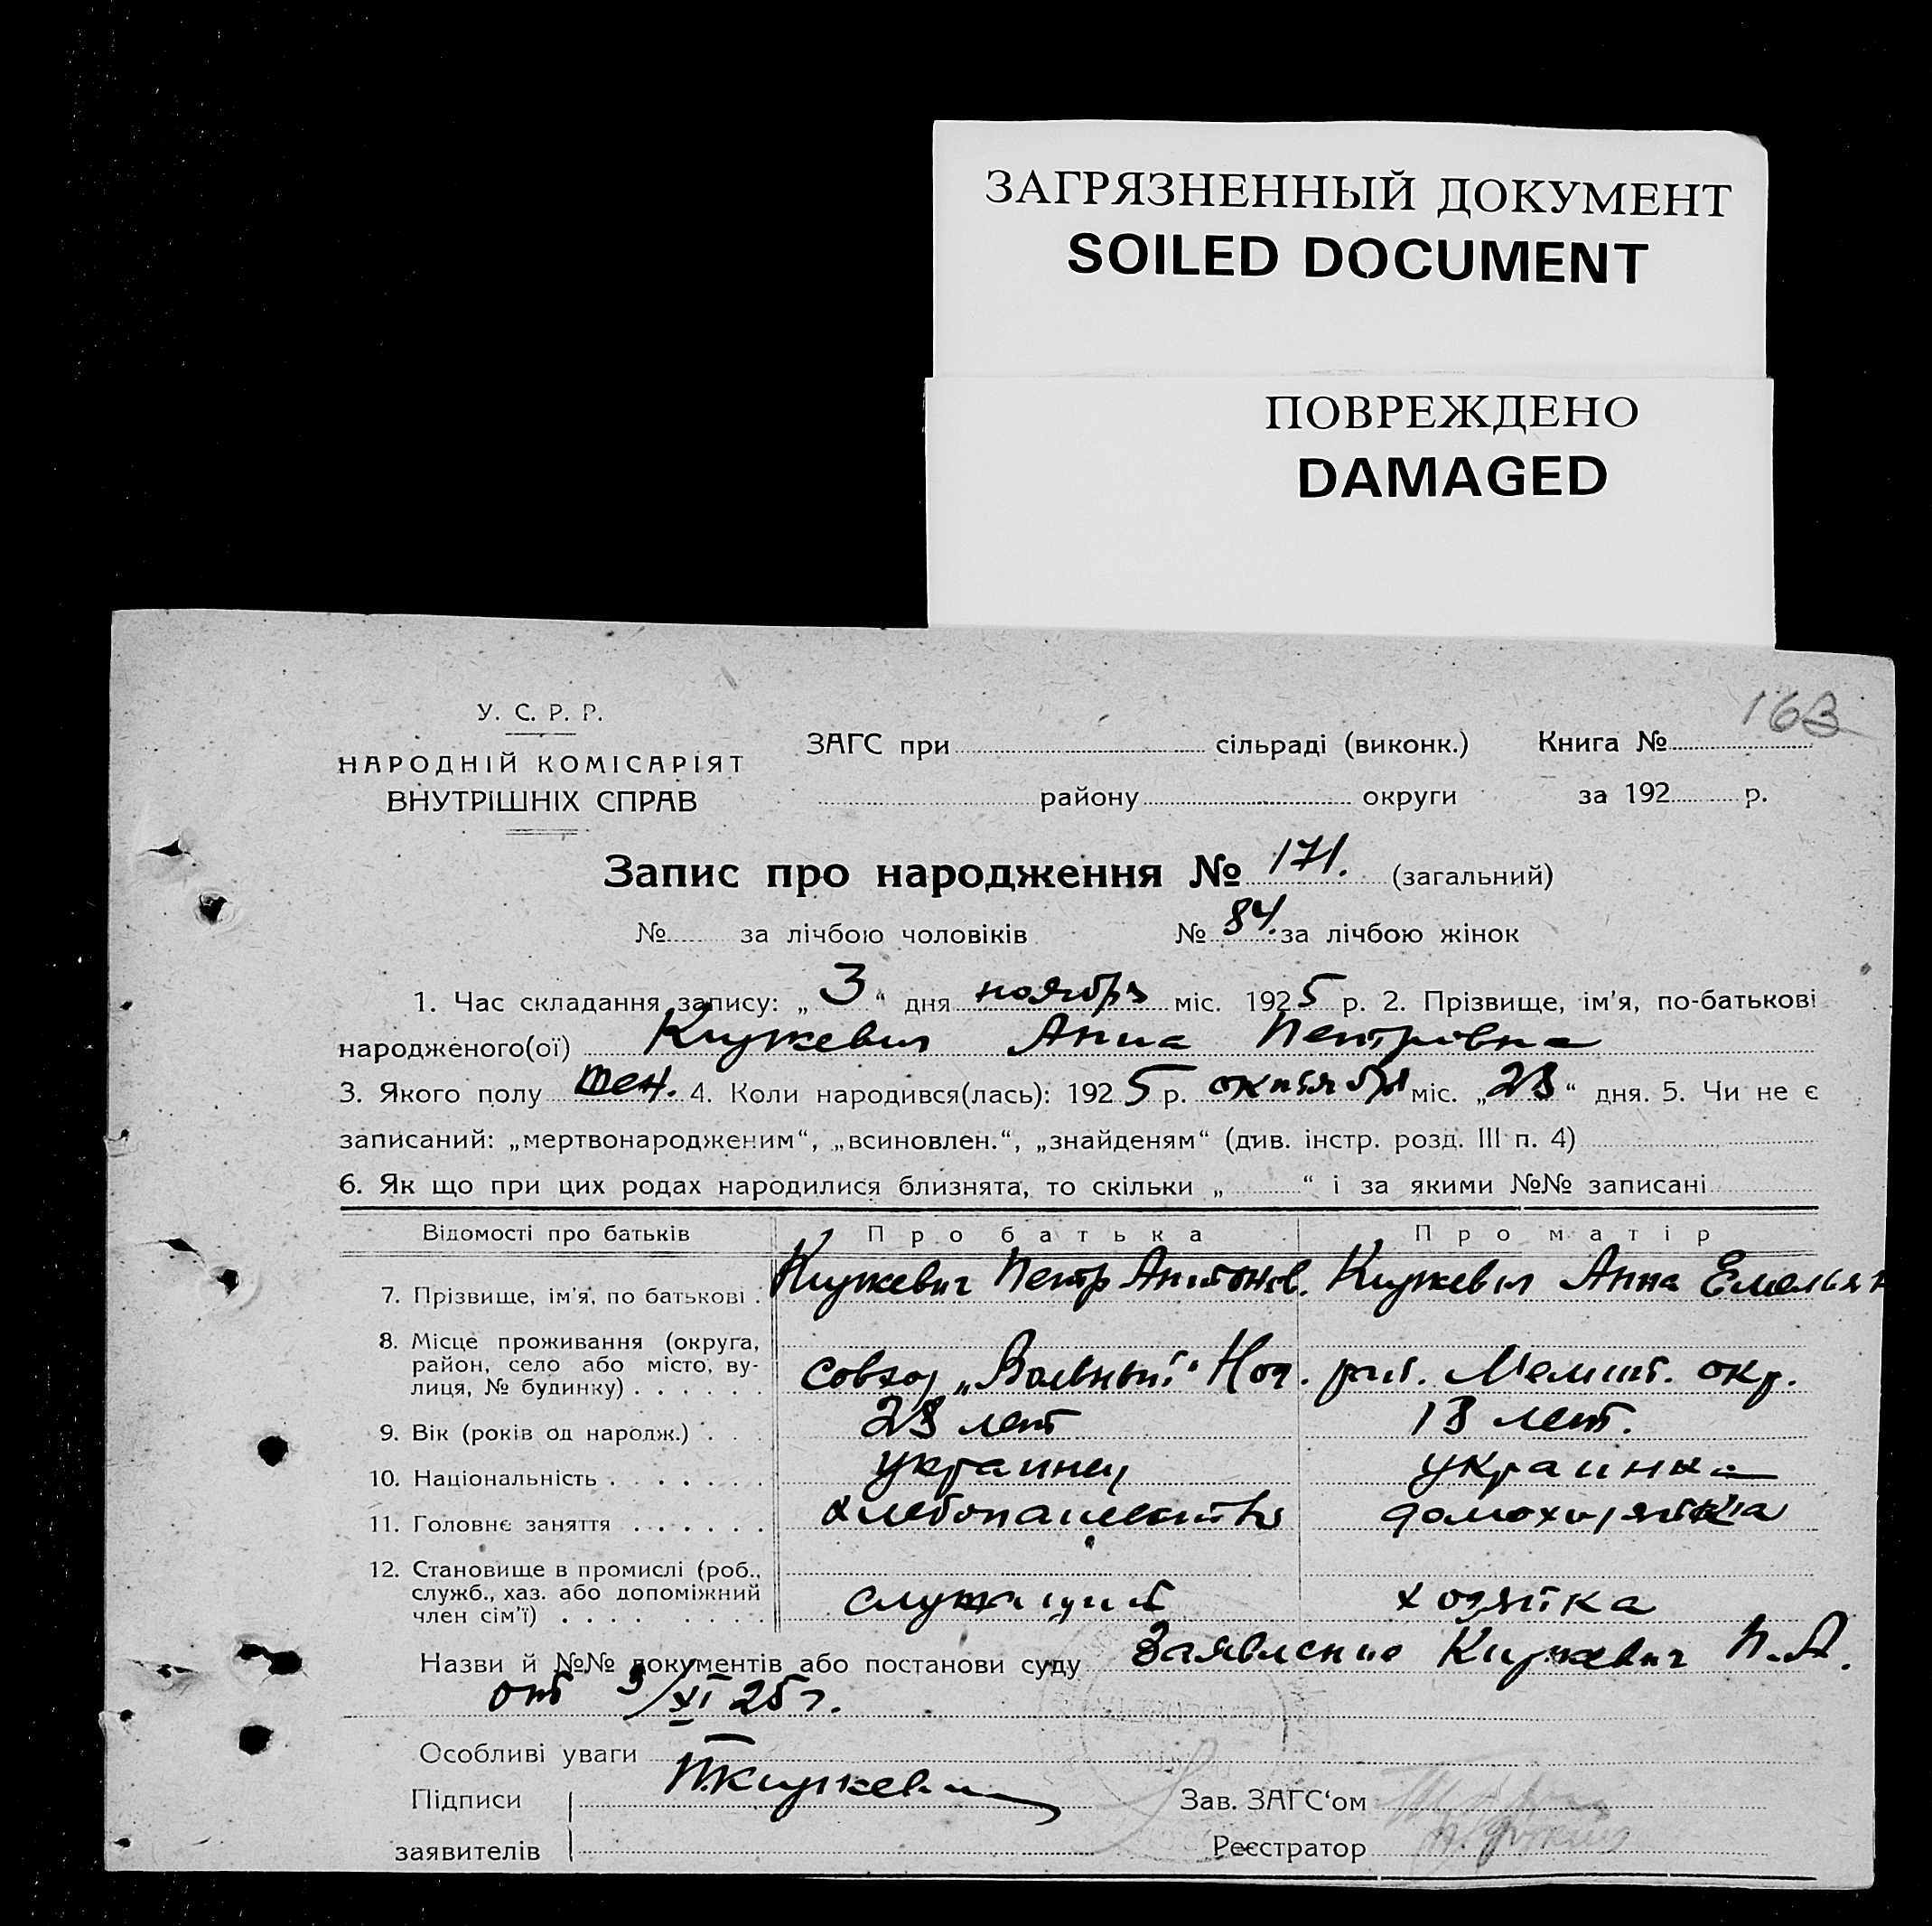 ЗАГРЯЗНЕННЫЙ ДОКУМЕНТ
SOILED DOCUMENT
ПОВРЕЖДЕНО
DAMAGED
163
У. С. Р. Р.
НАРОДНІЙ КОМІСАРІЯТ
ВНУТРІШНІХ СПРАВ
ЗАГС при сільраді (виконк.) Книга №
району округи за 192 р.
Запис про народження № 171. (загальний)
№ за лічбою чоловіків № 84. за лічбою жінок
1. Час складання запису: „3“ дня ноября міс. 1925 р. 2. Прізвище, ім'я, по-батькові
народженого(ої) Анна Петровна
3. Якого полу жен. 4. Коли народився(лась): 1925 р. октября міс. „28“ дня. 5. Чи не є
записаний: „мертвонародженим“, „всиновлен.“, „знайденям“ (див. інстр. розд. III п. 4)
6. Як що при цих родах народилися близнята, то скільки „ “ і за якими №№ записані
Відомості про батьків Про батька Про матір
7. Прізвище, ім'я, по батькові . Петр Антонов. Анна Емельян
8. Місце проживання (округа,
район, село або місто, ву-
лиця, № будинку) . . . . . . совхоз „Вольный“ Ног. рай. Мелит. окр.
9. Вік (років од народж.) . . . 28 лет 18 лет.
10. Національність . . . . . . . украинец украинка
11. Головнє заняття . . . . . . хлебопашество домохозяйка
12. Становище в промислі (роб.,
служб., хаз. або допоміжний
член сім'ї) . . . . . . . . . служащий хозяйка
Назви й №№ документів або постанови суду Заявление П.А.
от 3/XI 25 г.
Особливі уваги
Підписи
заявителів
Зав. ЗАГС‘ом
Реєстратор